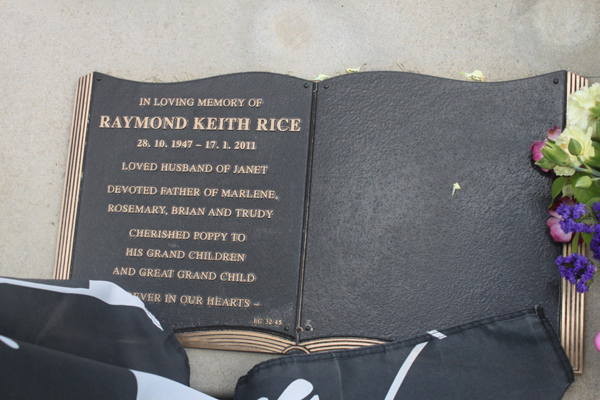 IN LOVING MEMORY OF
RAYMOND KEITH RICE
28. 10. 1947 – 17. 1. 2011
LOVED HUSBAND OF JANET
DEVOTED FATHER OF MARLENE,
ROSEMARY, BRIAN AND TRUDY
CHERISHED POPPY TO
HIS GRAND CHILDREN
AND GREAT GRAND CHILD
IN OUR HEARTS –